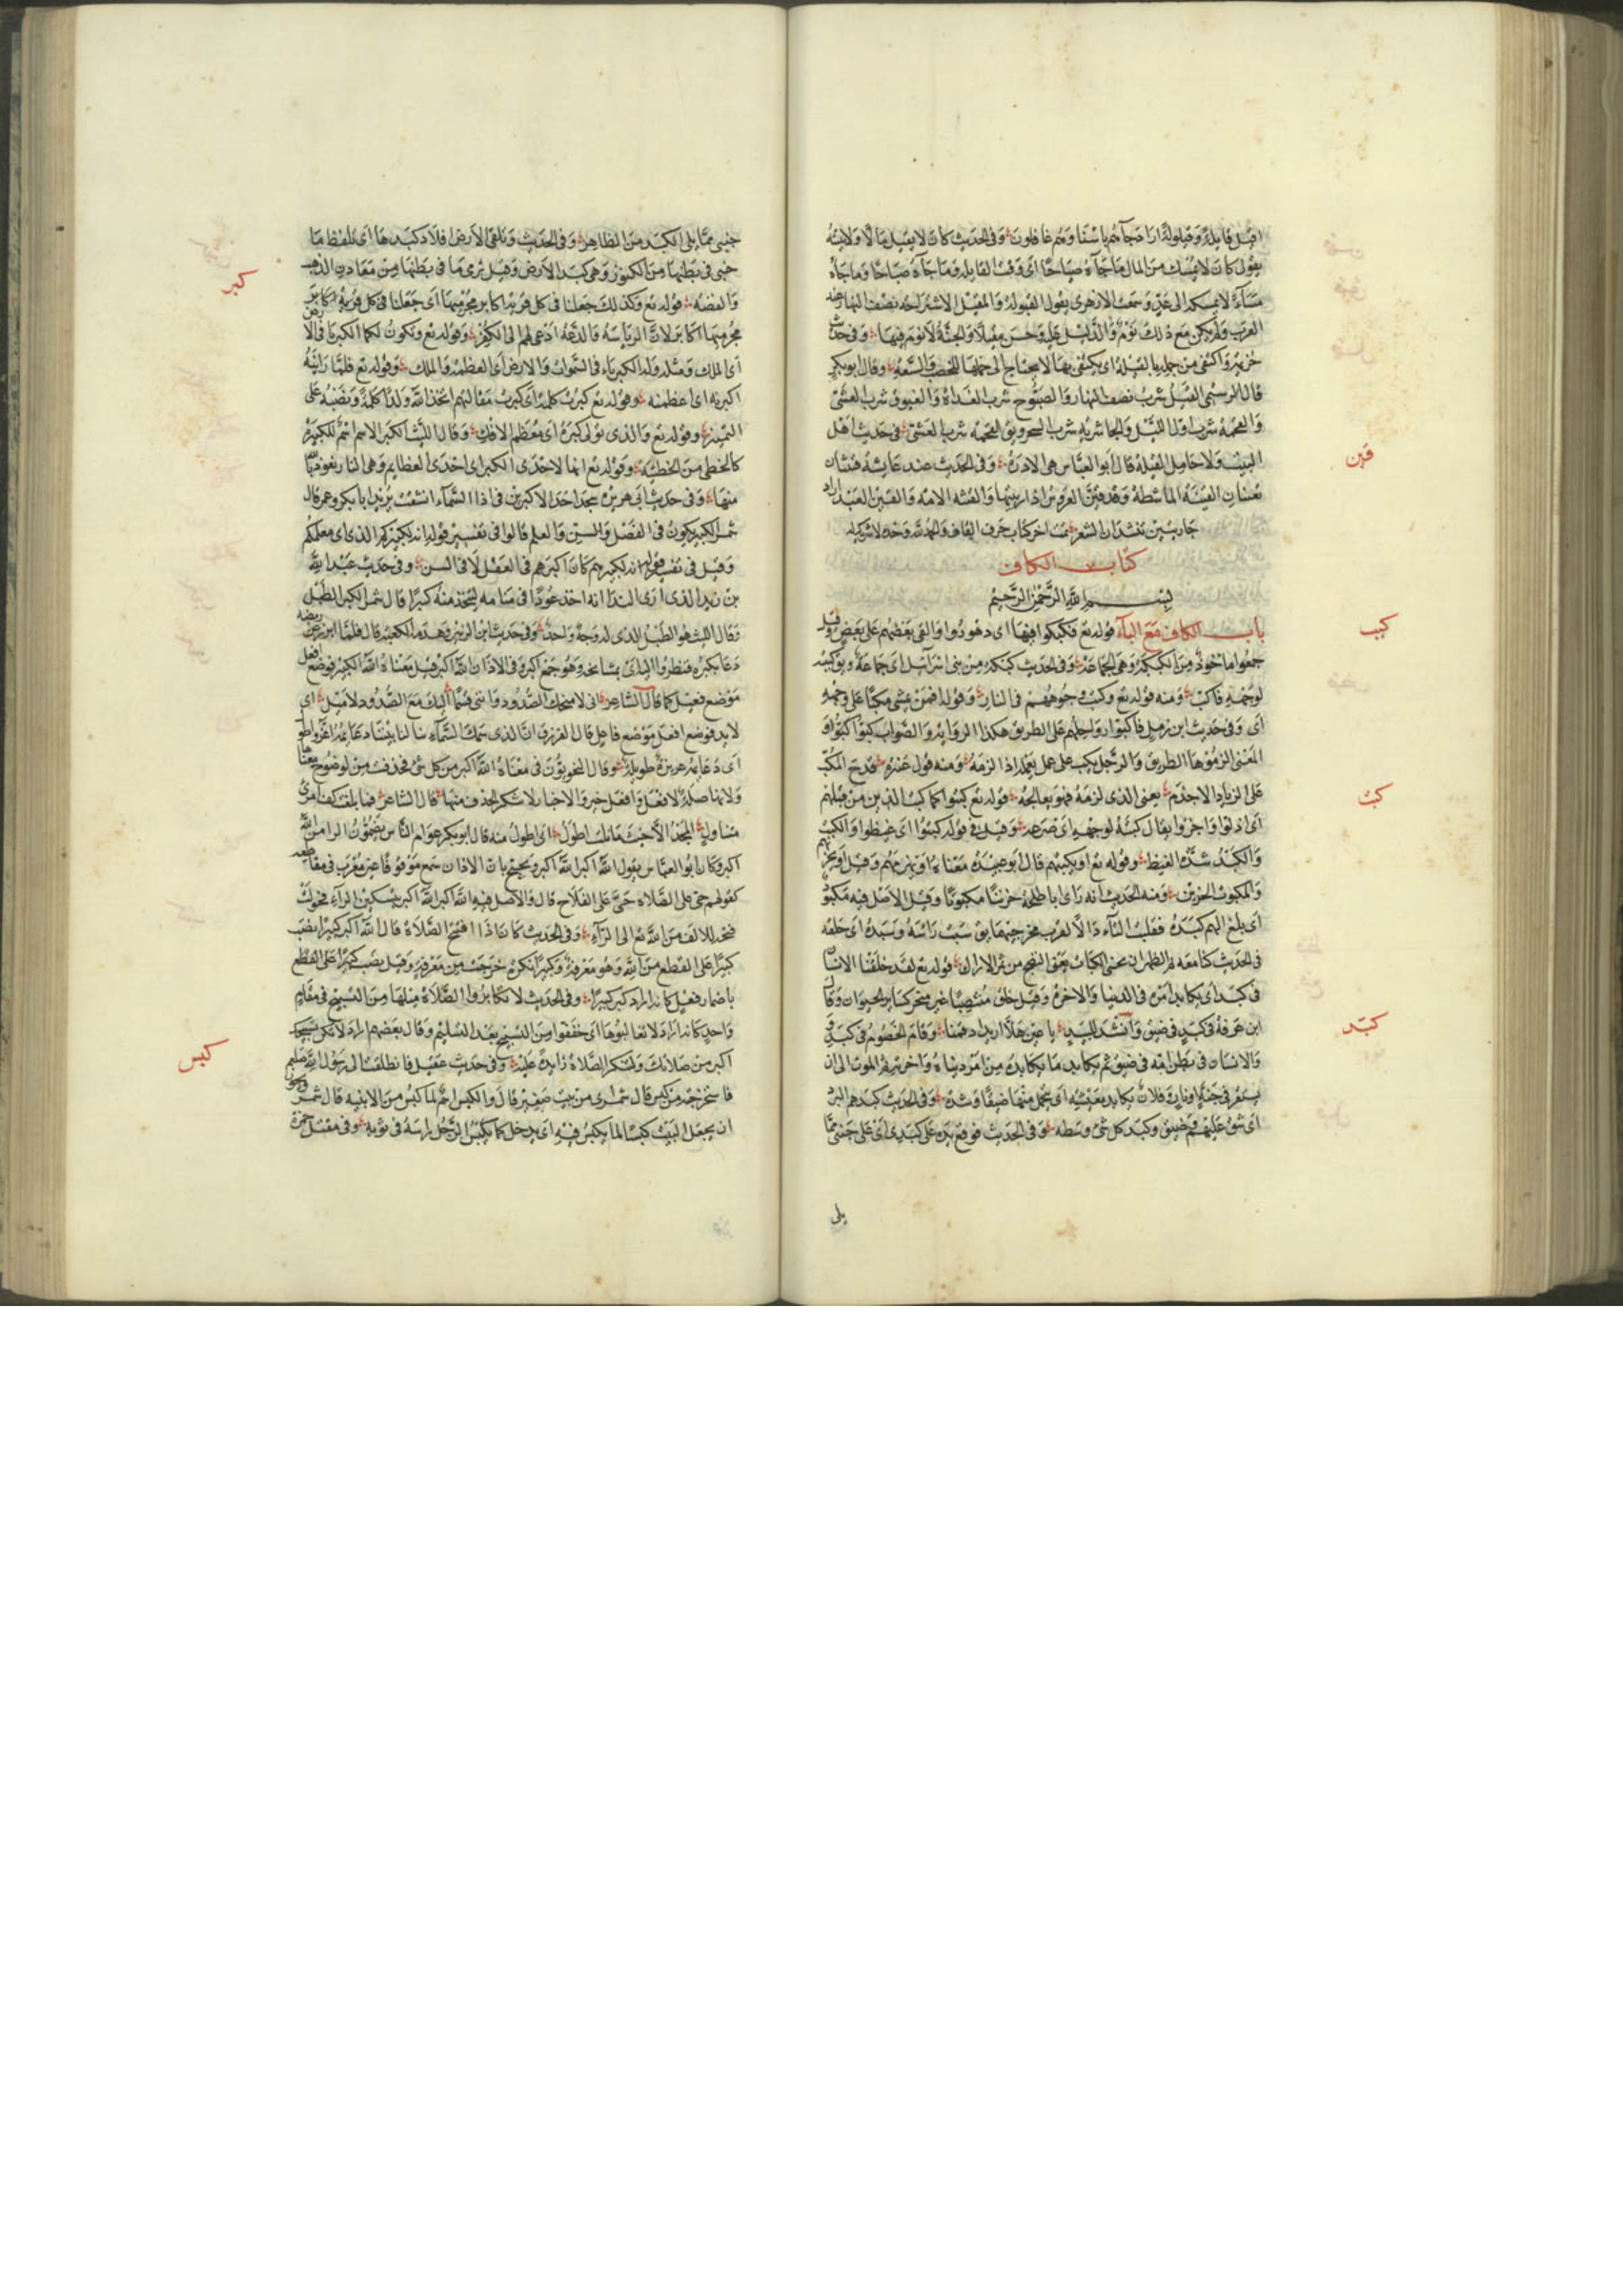 اقيل قايلة وقيلولة اراد جآءهم باسنا وهم غافلون وفى الحديث كان لا يقيل مالا ولا يبيته
يقول كان لا يمسك من المال ما جآءه صباحًا اى وقت القايله وما جآءه صباحًا وما جآءه
مسآءً لا يمسكه الى غدٍ وسمعت الازهرى يقول القيلولة والمقيل الاستراحه نصف النهار عند
العرب وان لم يكن مع ذلك نوم والدليل عليه واحسن مقيلا والجنة لا نوم فيها وفى حديث
خزيمة واكتفى من حمله بالقيلة اى يكتفى بها لا يحتاج الى حملها للخصب والسعة وقال ابو بكر
قال الرستمى القيل شرب نصف النهار والصبوح شرب الغداة والغبوق شرب العشى
والفحمة شرب اول الليل والجاشرية شرب السحر ويق الفحمه شرب العشى فى حديث اهل
البيت ولا حامل القيلة قال ابو العباس هى الادرة وفى الحديث عند عايشة قينتان
تغنيان القينة الماشطة وقد قينت العروس اذا زينتها والقينه الامه والقين العبد اراد
جاريتين تنشدان الشعر تمت اخر كتاب حرف القاف والحمد لله وحده لا شريك له
كتاب الكاف
بسم الله الرحمن الرحيم
باب الكاف مع البآء قوله تع فكبكبوا فيها اى دهوروا والقى بعضهم على بعض وقيل
جمعوا ماخوذ من الكبكبة وهى الجماعة وفى الحديث كبكبة من بنى اسرآئيل اى جماعة ويق كببته
لوجهه فاكب ومنه قوله تع وكبت وجوههم فى النار وقوله افمن يمشى مكبا على وجهه
اى وفى حديث ابن زمل فاكبوا رواحلهم على الطريق هكذا الرواية والصواب كبوا
المعنى الزموها الطريق والرجل يكب على عمل يعمله اذا لزمه ومنه قول عنترة قدح المكب
على الزناد الاجذم يعنى الذى لزمه فهو يعالجه قوله تع كبتوا كما كبت الذين من قبلهم
اى اذلوا واخزوا يقال كبته لوجهه اى صرعه وقيل فى قوله كبتوا اى غيظوا والكبت
والكبد شدة الغيظ وقوله تع او يكبتهم قال ابو عبيدة معناه او يهزمهم وقيل او يخزيهم
والمكبوت الحزين ومنه الحديث انه راى ابا طلحة حزينا مكبوتا وقيل الاصل فيه مكبود
اى بلغ الهم كبده فقلبت التآء دالا لقرب مخرجيهما يق سبت راسه وسبده اى حلقه
فى الحديث كنا معه بمر الظهران نجنى الكباث يعنى النضيج من ثمر الاراك قوله تع لقد خلقنا الانسان
فى كبد اى يكابد امره فى الدنيا والاخرة وقيل خلق منتصبا غير منحن كساير الحيوان وقال
ابن عرفة فى كبد فى ضيق وانشد للبيد يا عين هلا اربد اذ قمنا وقام الخصوم فى كبد
والانسان فى بطن امه فى ضيق ثم يكابد ما يكابده من امر دنياه واخرته ثم الموت الى ان
يستقر فى جنة او نار وفلان يكابد معيشته اى يتحمل منها ضيقا وشدة وفى الحديث كبدهم البرد
اى شق عليهم وضيق وكبد كل شى وسطه وفى الحديث فوقع يده على كبدى اى على جنبى مما
يلى
قين
كبب
كبت
كبد
جنبى مما يلى الكبد من الظاهر وفى الحديث وتلقى الارض افلاذ كبدها اى تلفظ ما
خبى فى بطنها من الكنوز وهى كبد الارض وقيل ترى ما فى بطنها من معادن الذهب
والفضه قوله تع وكذلك جعلنا فى كل قرية اكابر مجرميها اى جعلنا فى كل قرية اكابر
مجرميها اكابر لان الرياسه والدعة ادعى لهم الى الكفر وقوله تع وتكون لكما الكبريآ فى الارض
اى الملك ومثله وله الكبريآء فى السموات والارض اى العظمة والملك وقوله تع فلما راينه
اكبرنه اى اعظمنه وقوله تع كبرت كلمة اى كبرت مقالتهم اتخذ الله ولدا كلمة ونصبه على
التمييز وقوله تع والذى تولى كبره اى معظم الافك وقال الليث الكبر الاسم اثم للكبيرة
كالخطى من الخطيئة وقوله تع انها لاحدى الكبر اى احدى العظايم وهى النار نعوذ بالله
منها وفى حديث ابى هريرة سجد احد الاكبرين فى اذا السمآء انشقت يريد ابا بكر وعمر قال
شمر الكبر يكون فى الفضل والسن والعلم قالوا فى تفسير قوله انه لكبيركم الذى اى معلمكم
وقيل فى تفسير قوله انه لكبيرهم كان اكبرهم فى العقل لا فى السن وفى حديث عبد الله
بن زيد الذى ارى الندا انه اخذ عودا فى منامه ليتخذ منه كبرا قال شمر الكبر الطبل
وقال الليث هو الطبل الذى له وجه واحد وفى حديث ابن الزبير وهدمه الكعبة قال فلما ابرز عن ربضه
دعا بكبره فنظروا اليه اى بمشايخه وهو جمع اكبر وفى الاذان الله اكبر قيل معناه الله الكبير فوضع افعل
موضع فعيل كما قال الشاعر انى لامنحك الصدود واننى قسما اليك مع الصدود لاميل اى
لابد فوضع افعل موضع فاعل قال الفرزدق ان الذى سمك السمآء بنا لنا بيتنا دعايمه اعز واطول
اى دعايمه عزيزة طويلة وقال النحويون فى معناه الله اكبر من كل شى فحذفت من لوضوح معناها
ولانها صلة لافعل وافعل خبر والاخبار لا ينكر الحذف منها قال الشاعر فما بلغت كف امرئ
متناول المجد الا حيث ما نلت اطول اى اطول منه قال ابو بكر عوام الناس يضمون الرا من الله
اكبر وكان ابو العباس يقول الله اكبر الله اكبر ويحتج بان الاذان سمع موقوفا غير معرب فى مقاطعه
كقولهم حى على الصلاة حى على الفلاح قال والاصل فيه الله اكبر الله اكبر بتسكين الرآء فحولت
فتحة الالف من الله تع الى الرآء وفى الحديث كان اذا افتتح الصلاة قال الله اكبر كبيرا نصب
كبيرا على القطع من الله وهو معرفة وكبيرا نكرة خرجت من معرفة وقيل نصب كبيرا على القطع
باضمار فعل كانه اراد كبر كبيرا وفى الحديث لا تكابروا الصلاة مثلها من التسبيح فى مقام
واحد كانه اراد لا تغالبوها اى خففوا من التسبيح بعد التسليم وقال بعضهم اراد لا يكن تسبيحك
اكبر من صلاتك ولتكن الصلاة زايدة عليه وفى حديث عقيل فانطلقت الى رسول الله صلعم
فاستخرجته من كبس قال شمر اى من بيت صغير قال والكبس اسم لما كبس من الابنيه قال شمر ويكون
ان يجعل البيت كبسا لما يكبس فيه اى يدخل كما يكبس الرجل راسه فى ثوبه وفى مقتل حمزة
كبر
كبس